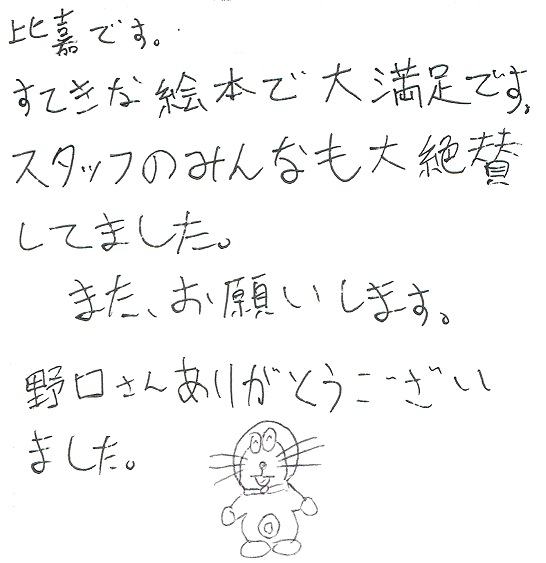 比嘉です。
すてきな絵本で大満足です。
スタッフのみんなも大絶賛
してました。
また、お願いします。
野口さんありがとうございい
ました。